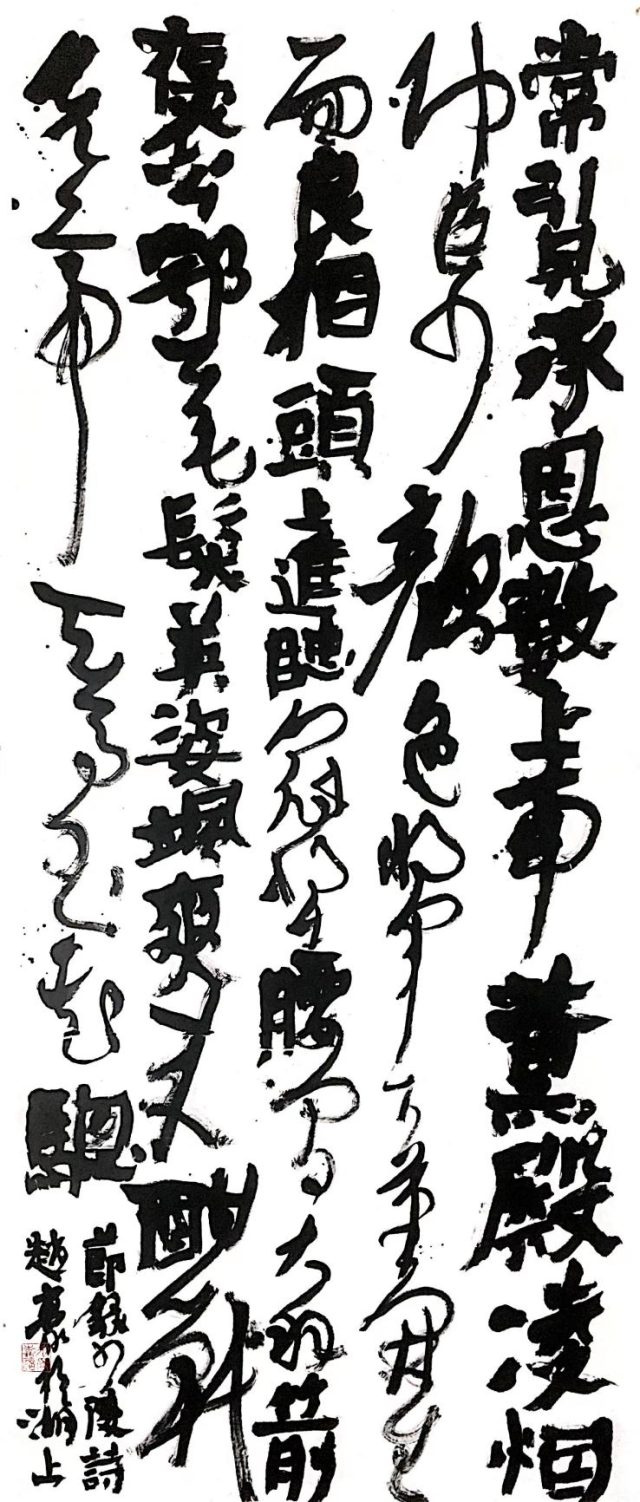 常引見承恩數上南薰殿凌烟
功臣少顏色將軍下筆開生
面良相頭上進賢冠猛將腰間大羽箭
褒公鄂公毛髮英姿颯爽又酣戰
先帝天馬玉花驄
節錄少陵詩
趙於湖上